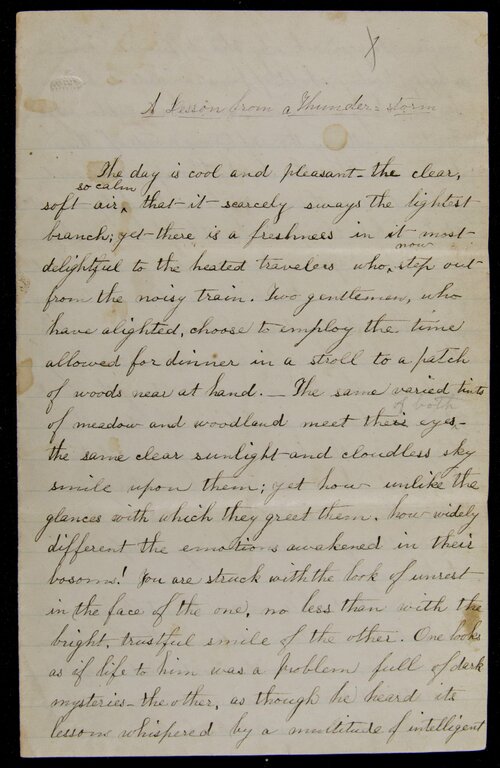 X
A Lesson from a Thunder-storm
The day is cool and pleasant - the clear,
so calm
soft air, that it scarcely sways the lightest
branch; yet there is a freshness in it most
now
delightful to the heated travelers who step out
from the noisy train. Two gentlemen, who
have alighted, choose to employ the time
allowed for dinner in a stroll to a patch
of woods near at hand. — The same varied tints
of meadow and woodland meet their eyes -
of both
the same clear sunlight and cloudless sky
smile upon them; yet how unlike the
glances with which they greet them, how widely
different the emotions awakened in their
bosoms! You are struck with the look of unrest
in the face of the one, no less than with the
bright, trustful smile of the other. One looks
as if life to him was a problem full of dark
mysteries - the other, as though he heard its
lessons whispered by a multitude of intelligent